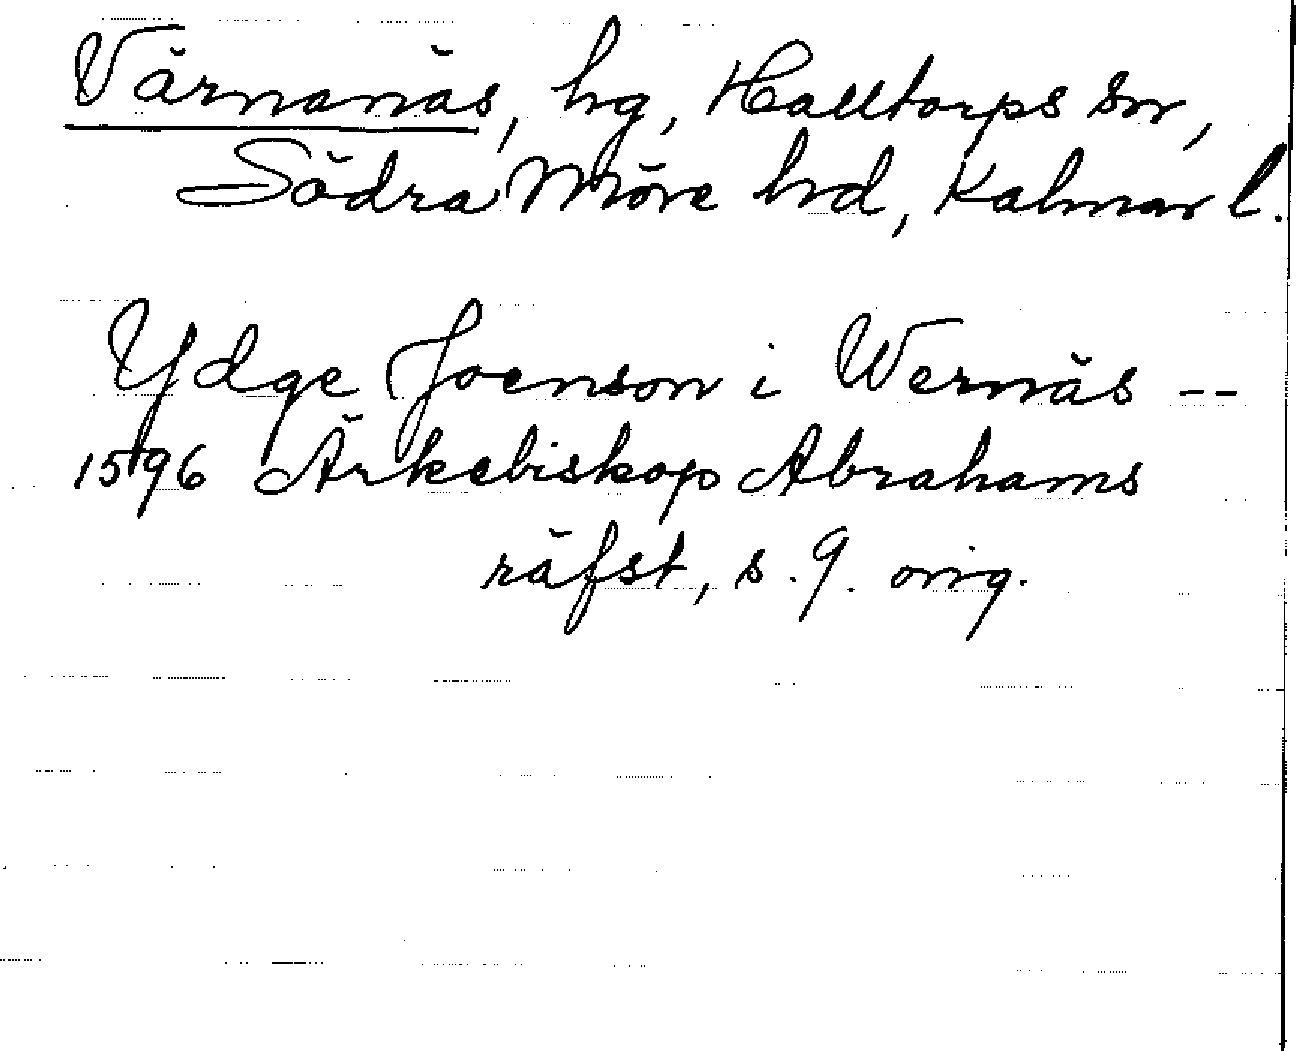 Värnanäs, hg, Halltorps sn,
Södra Möre hd, Kalmar l.
Ydge Joenson i Wernäs --
1596 Ärkebiskop Abrahams
räfst, s. 9. orig.